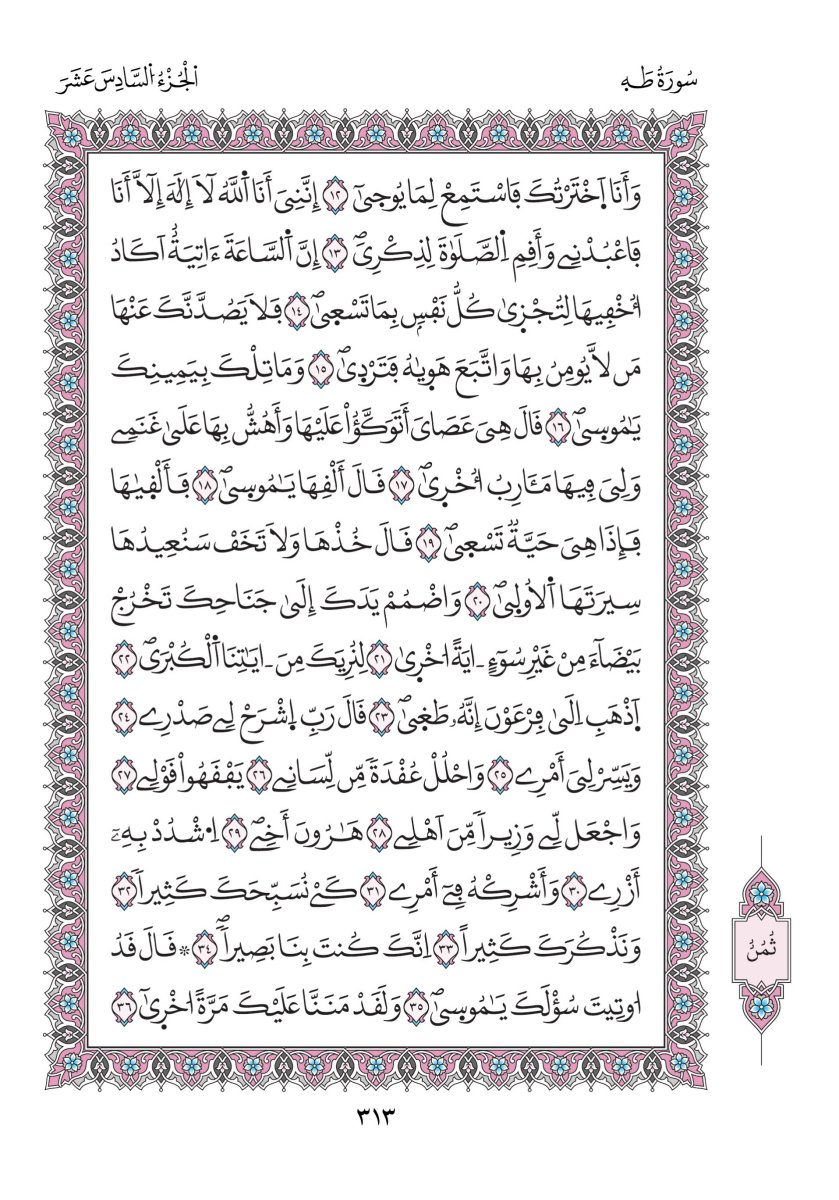 سُورَةُ طَهِ
اَلْجُزْءُ اُلسَّادِسَ عَشَرَ
وَأَنَا اَ۪خْتَرْتُكَ فَاسْتَمِعْ لِمَا يُوح۪ىٰٓ ١٢ إِنَّنِىَ أَنَا اَ۬للَّهُ لَآ إِلَٰهَ إِلَّآ أَنَا
فَاعْبُدْنِے وَأَقِمِ اِ۬لصَّلَوٰةَ لِذِكْرِىَۖ ١٣ إِنَّ اَ۬لسَّاعَةَ ءَاتِيَةٌ اَكَادُ
أُخْفِيهَا لِتُجْز۪ىٰ كُلُّ نَفْسِۢ بِمَا تَسْع۪ىٰۖ ١٤ فَلَا يَصُدَّنَّكَ عَنْهَا
مَن لَّا يُومِنُ بِهَا وَاتَّبَعَ هَو۪يٰهُ فَتَرْد۪ىٰۖ ١٥ وَمَا تِلْكَ بِيَمِينِكَ
يَٰمُوس۪ىٰۖ ١٦ قَالَ هِىَ عَصَاىَ أَتَوَكَّؤُاْ عَلَيْهَا وَأَهُشُّ بِهَا عَلَىٰ غَنَمِے
وَلِىَ فِيهَا مَـَٔارِبُ أُخْر۪ىٰۖ ١٧ قَالَ أَلْقِهَا يَٰمُوس۪ىٰۖ ١٨ فَأَلْق۪يٰهَا
فَإِذَا هِىَ حَيَّةٌ تَسْع۪ىٰۖ ١٩ قَالَ خُذْهَا وَلَا تَخَفْ سَنُعِيدُهَا
سِيرَتَهَا اَ۬لُاول۪ىٰۖ ٢٠ وَاضْمُمْ يَدَكَ إِلَىٰ جَنَاحِكَ تَخْرُجْ
بَيْضَآءَ مِنْ غَيْرِ سُوٓءٍ ـ ايَةً اُخْر۪ىٰ ٢١ لِنُرِيَكَ مِنَ ـ ايَٰتِنَا اَ۬لْكُبْرَىۖ ٢٢
اَ۪ذْهَبِ اِلَىٰ فِرْعَوْنَ إِنَّهُۥ طَغ۪ىٰۖ ٢٣ قَالَ رَبِّ اِ۪شْرَحْ لِے صَدْرِے ٢٤
وَيَسِّرْ لِىَ أَمْرِے ٢٥ وَاحْلُلْ عُقْدَةً مِّن لِّسَانِے ٢٦ يَفْقَهُواْ قَوْلِے ٢٧
وَاجْعَل لِّے وَزِيراً مِّنَ اَهْلِے ٢٨ هَٰرُونَ أَخِےۖ ٢٩ اِ۟شْدُدْ بِهِۦٓ
أَزْرِے ٣٠ وَأَشْرِكْهُ فِےٓ أَمْرِے ٣١ كَےْ نُسَبِّحَكَ كَثِيراً ٣٢
وَنَذْكُرَكَ كَثِيراً ٣٣ اِنَّكَ كُنتَ بِنَا بَصِيراًۖ ٣٤ ۞ قَالَ قَدُ
اُوتِيتَ سُؤْلَكَ يَٰمُوس۪ىٰۖ ٣٥ وَلَقَدْ مَنَنَّا عَلَيْكَ مَرَّةً اُخْر۪ىٰٓ ٣٦
ثُمُنُ
٣١٣